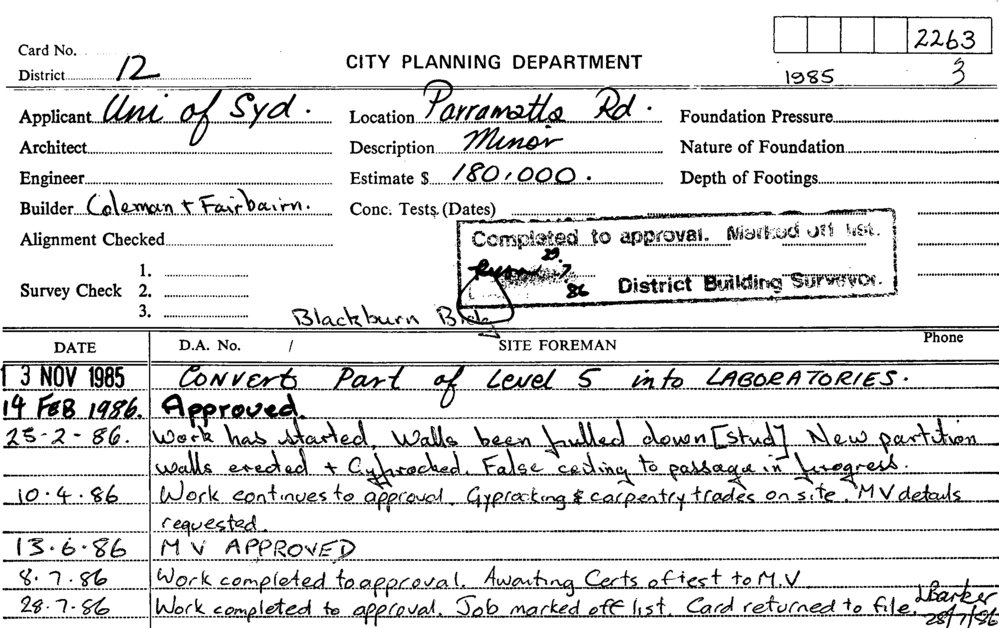 2263
Card No.
CITY PLANNING DEPARTMENT
District 12
1985 3
Applicant Uni of Syd. Location Parramatta Rd. Foundation Pressure
Architect Description Minor Nature of Foundation
Engineer Estimate $ 180,000. Depth of Footings
Builder Coleman + Fairbairn. Conc. Tests (Dates)
Alignment Checked
Completed to approval. Marked off list.
29
7
86 District Building Surveyor.
Survey Check 1.
2.
3.
Blackburn Bldg
DATE D.A. No. / SITE FOREMAN Phone
13 NOV 1985 Convert Part of Level 5 into LABORATORIES.
14 FEB 1986. Approved.
25-2-86. Work has started. Walls been pulled down [stud] New partition
walls erected + Gyprocked. False ceiling to passage in progress.
10.4.86 Work continues to approval. Gyprocking & carpentry trades on site. MV details
requested.
13.6.86 MV APPROVED
8.7.86 Work completed to approval. Awaiting Certs of test to M.V
28.7.86 Work completed to approval. Job marked off list. Card returned to file. JBarker
28/7/86